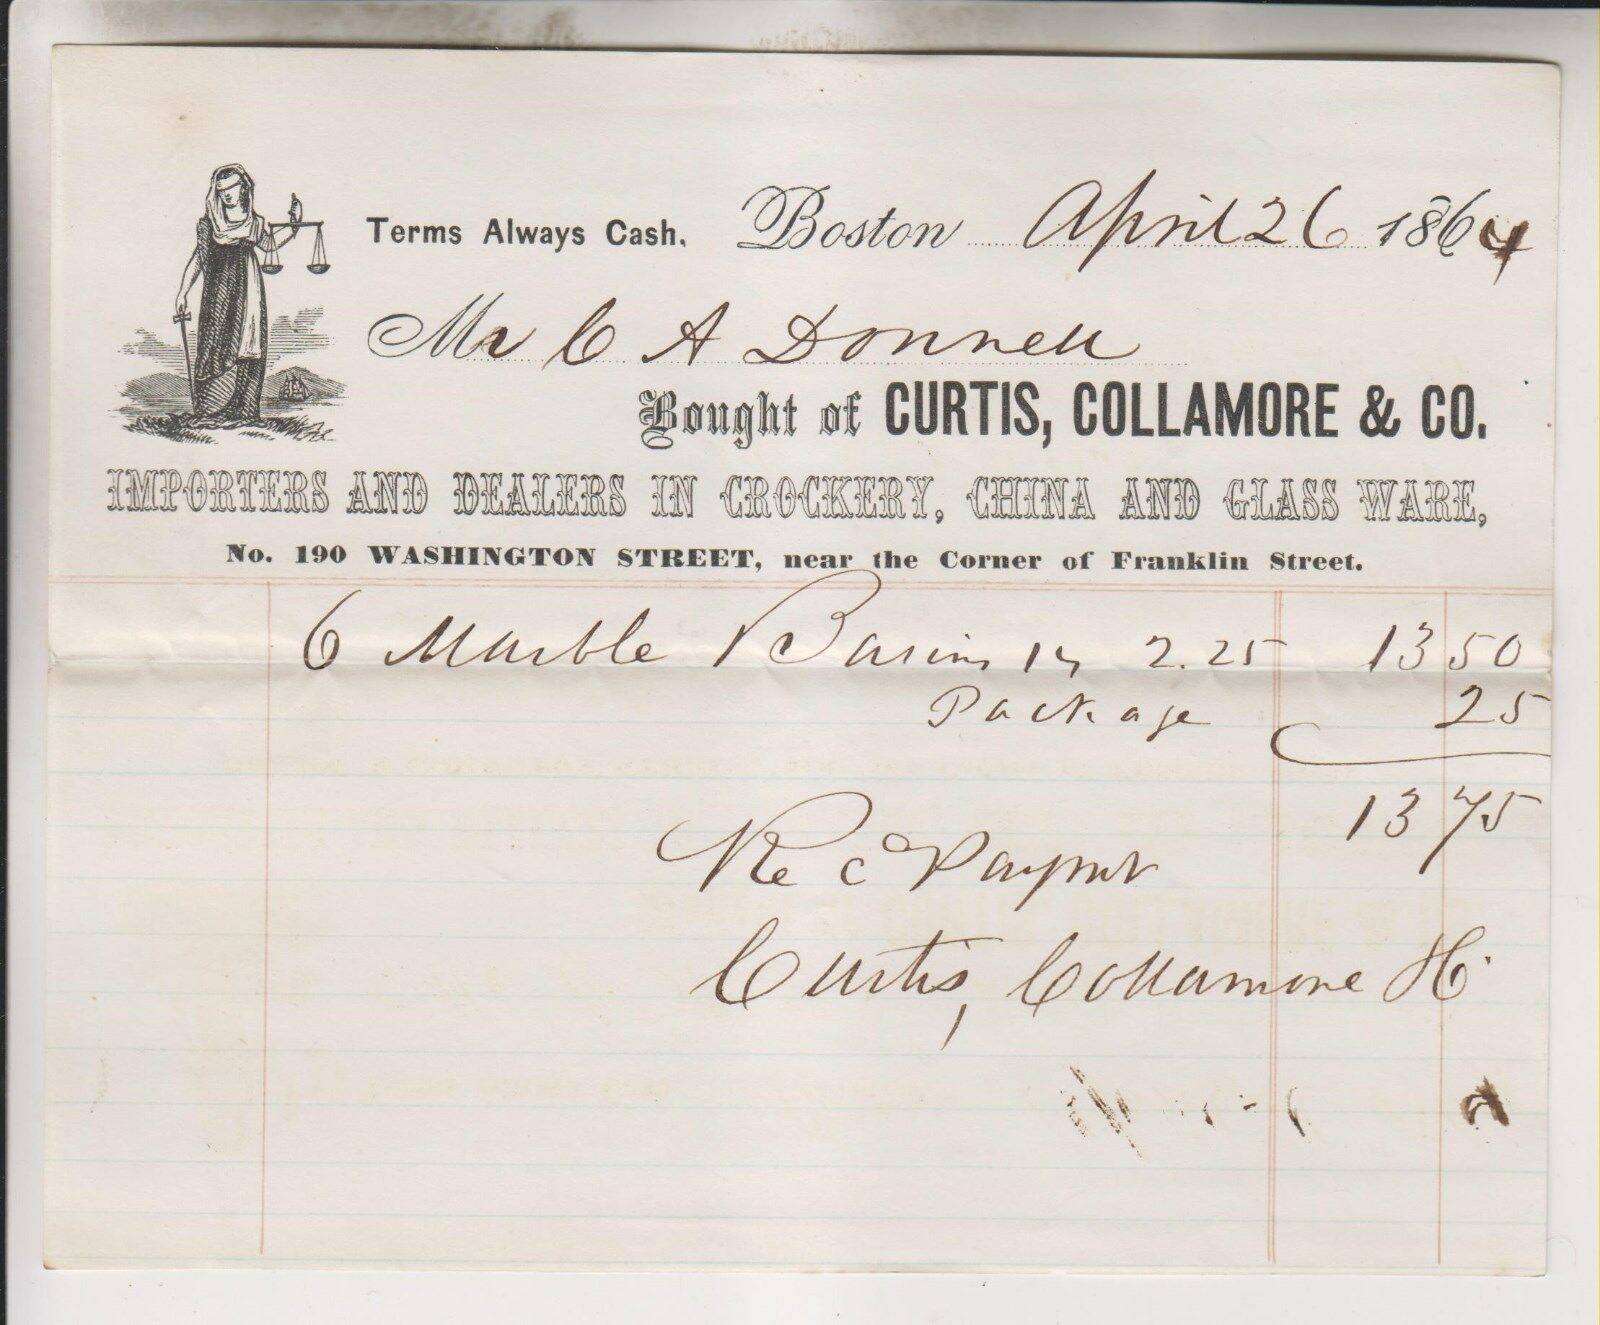 Terms Always Cash. Boston April 26 1864
Mr C A Donnell
Bought of CURTIS, COLLAMORE & CO.
IMPORTERS AND DEALERS IN CROCKERY, CHINA AND GLASS WARE,
No. 190 WASHINGTON STREET, near the Corner of Franklin Street.
6 Marble Basins 14 2.25 13 50
Package 25
13 75
Rec Paymt
Curtis, Collamore